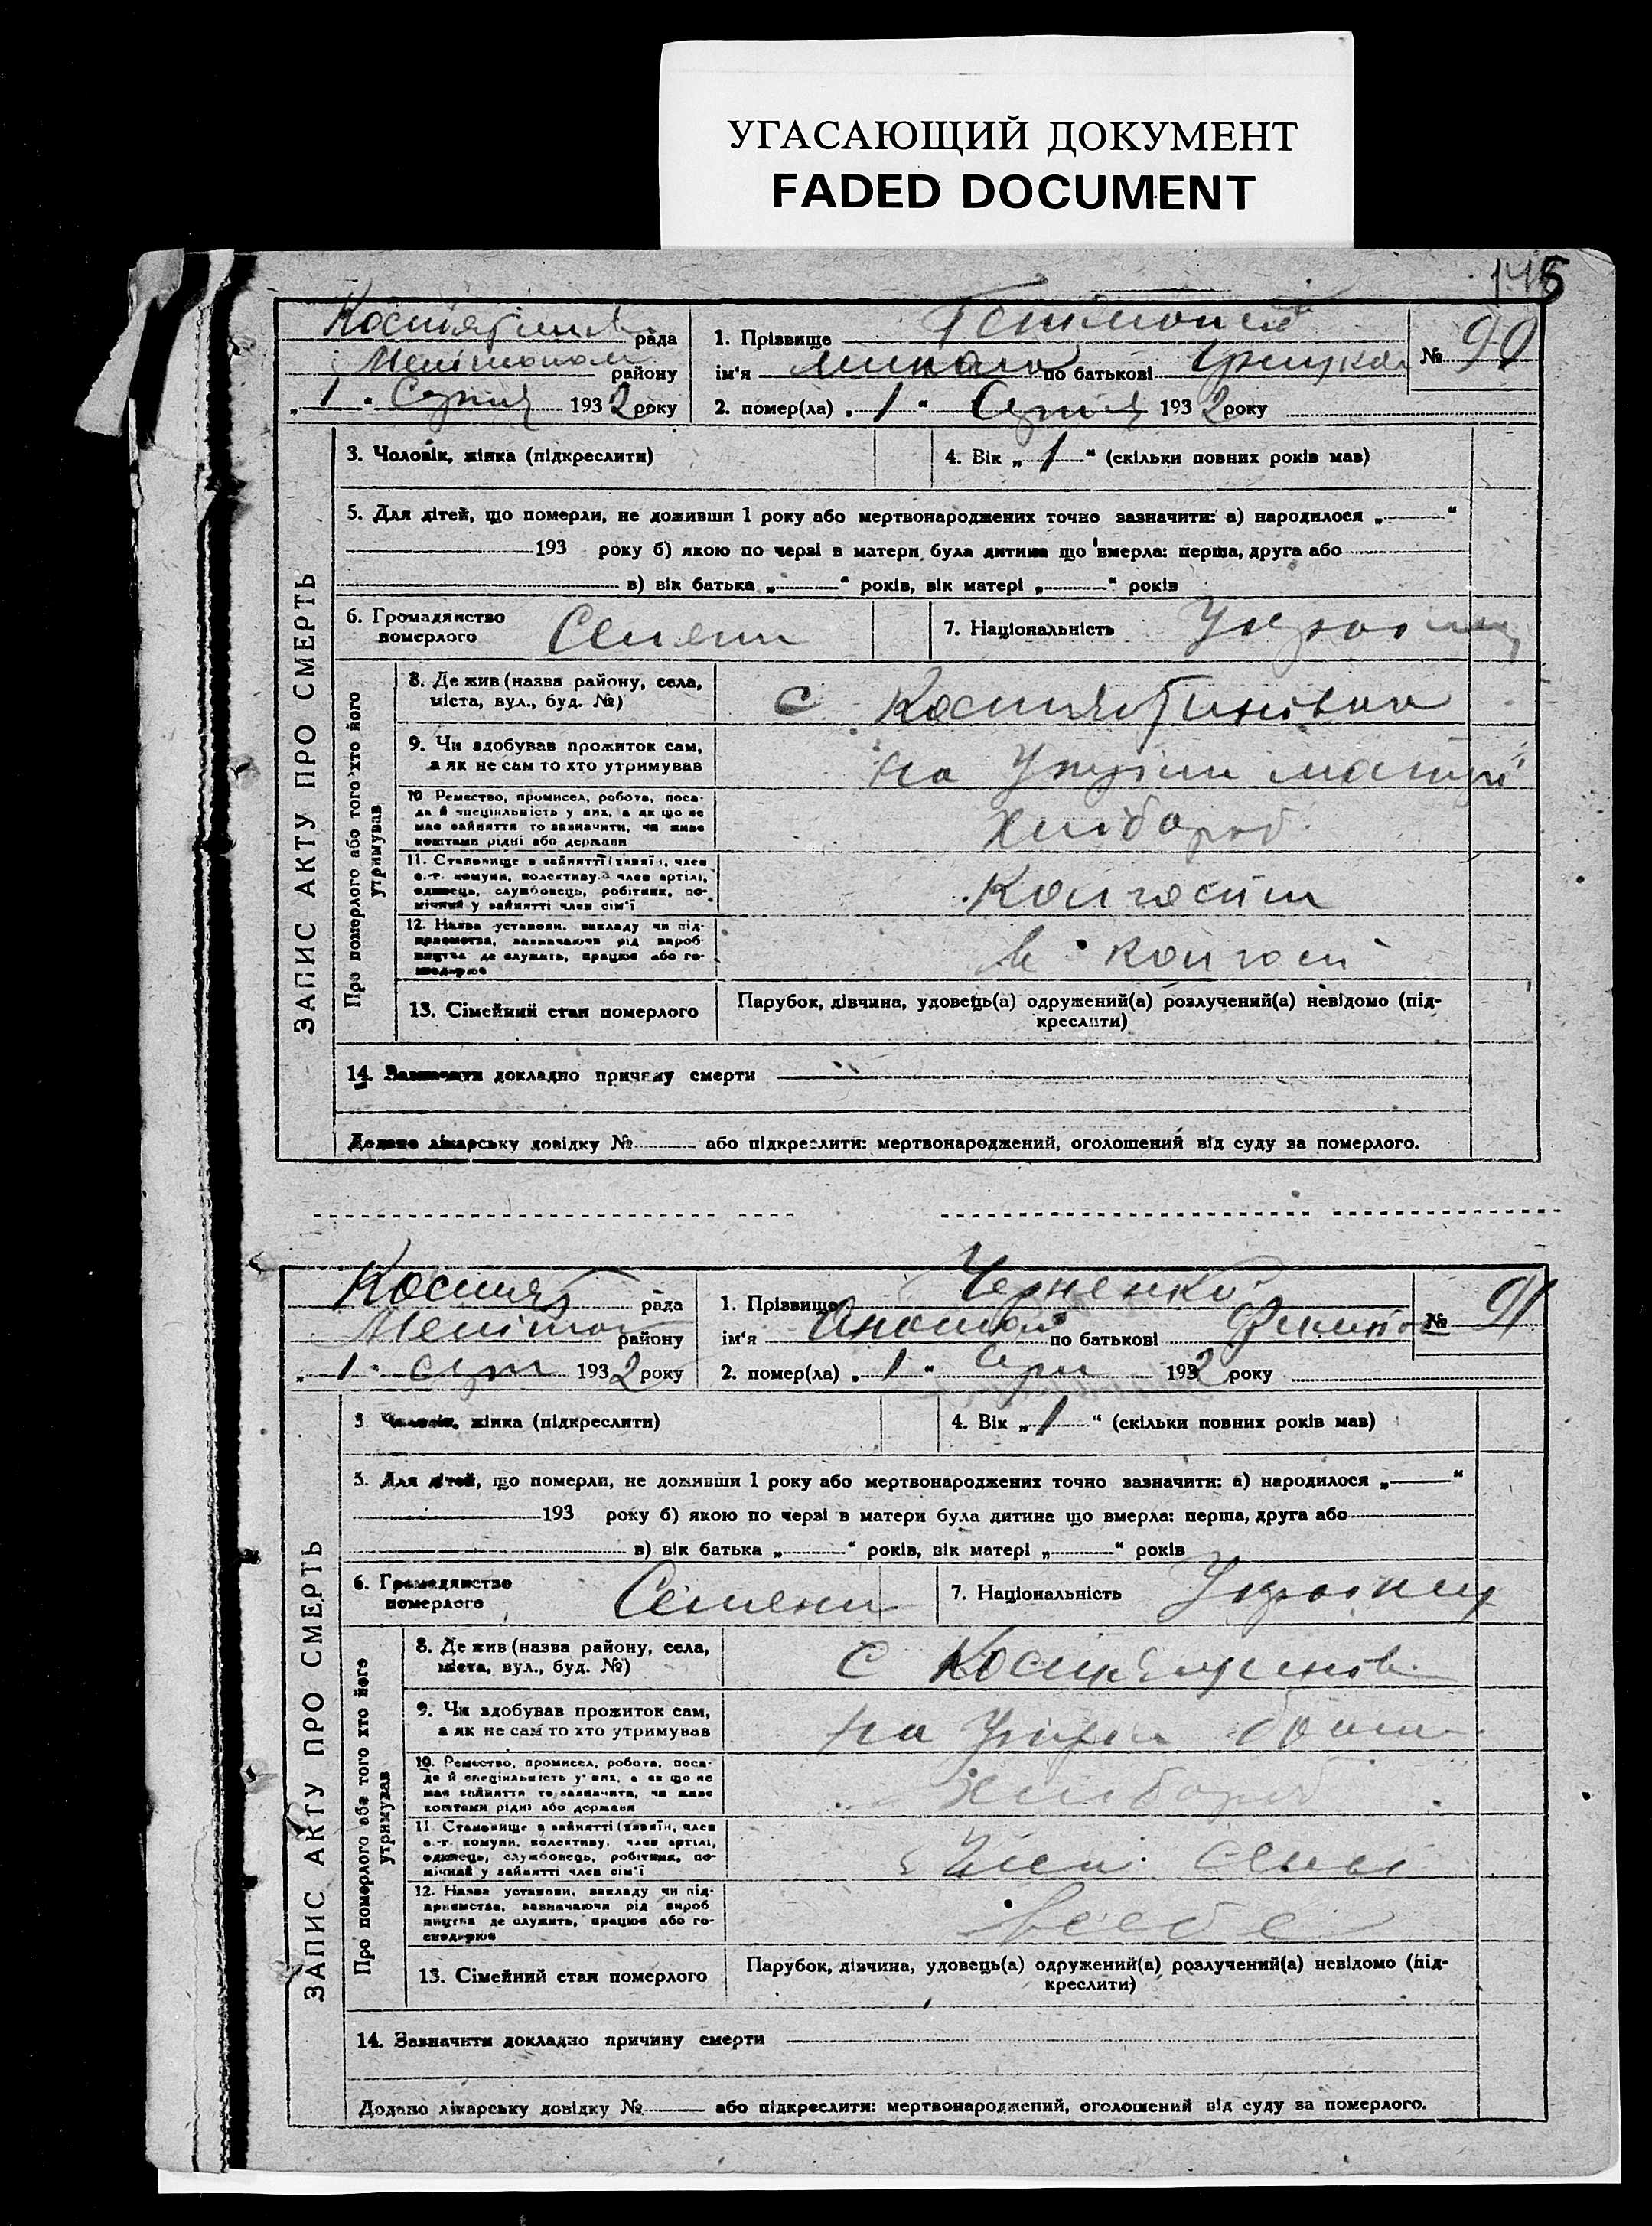 УГАСАЮЩИЙ ДОКУМЕНТ
FADED DOCUMENT
5
рада
району
„ 1 " Серпня 1932 року
1. Прізвище
ім'я Микола по батькові
2. помер(ла) „ 1 " Серпня 1932 року
№ 90
ЗАПИС АКТУ ПРО СМЕРТЬ
3. Чоловік, жінка (підкреслити)
4. Вік „ 1 " (скільки повних років мав)
5. Для дітей, що померли, не доживши 1 року або мертвонароджених точно зазначити: а) народилося „ "
193 року б) якою по черзі в матери була дитина що вмерла: перша, друга або
в) вік батька „ " років, вік матері „ " років
6. Громадянство
померлого
7. Національність
Про померлого або того хто його
утримував
8. Де жив (назва району, села,
міста, вул., буд. №)
с Костянтинівка
9. Чи здобував прожиток сам,
а як не сам то хто утримував
на матері
10. Ремество, промисел, робота, поса-
да й спеціяльність у них, а як що не
має зайняття то зазначити, чи живе
коштами рідні або держави
Хлібороб
11. Становище в зайнятті (хазяїн, член
с.-г. комуни, колективу, член артілі,
одинець, службовець, робітник, по-
мічний у зайнятті член сім'ї
12. Назва установи, закладу чи під-
приємства, зазначаючи рід вироб-
ництва де служить, працює або го-
сподарює
13. Сімейний стан померлого
Парубок, дівчина, удовець(а) одружений(а) розлучений(а) невідомо (під-
креслити)
14. Зазначити докладно причину смерти
Додано лікарську довідку № або підкреслити: мертвонароджений, оголошений від суду за померлого.
рада
району
„ 1 " серп 1932 року
1. Прізвище Черненко
ім'я по батькові
2. помер(ла) „ 1 " серп 1932 року
№ 91
ЗАПИС АКТУ ПРО СМЕРТЬ
3. Чоловік, жінка (підкреслити)
4. Вік „ 1 " (скільки повних років мав)
5. Для дітей, що померли, не доживши 1 року або мертвонароджених точно зазначити: а) народилося „ "
193 року б) якою по черзі в матери була дитина що вмерла: перша, друга або
в) вік батька „ " років, вік матері „ " років
6. Громадянство
померлого
7. Національність
Про померлого або того хто його
утримував
8. Де жив (назва району, села,
міста, вул., буд. №)
с
9. Чи здобував прожиток сам,
а як не сам то хто утримував
на
10. Ремество, промисел, робота, поса-
да й спеціяльність у них, а як що не
має зайняття то зазначити, чи живе
коштами рідні або держави
Хлібороб
11. Становище в зайнятті (хазяїн, член
с.-г. комуни, колективу, член артілі,
одинець, службовець, робітник, по-
мічний у зайнятті член сім'ї
12. Назва установи, закладу чи під-
приємства, зазначаючи рід вироб-
ництва де служить, працює або го-
сподарює
13. Сімейний стан померлого
Парубок, дівчина, удовець(а) одружений(а) розлучений(а) невідомо (під-
креслити)
14. Зазначити докладно причину смерти
Додано лікарську довідку № або підкреслити: мертвонароджений, оголошений від суду за померлого.